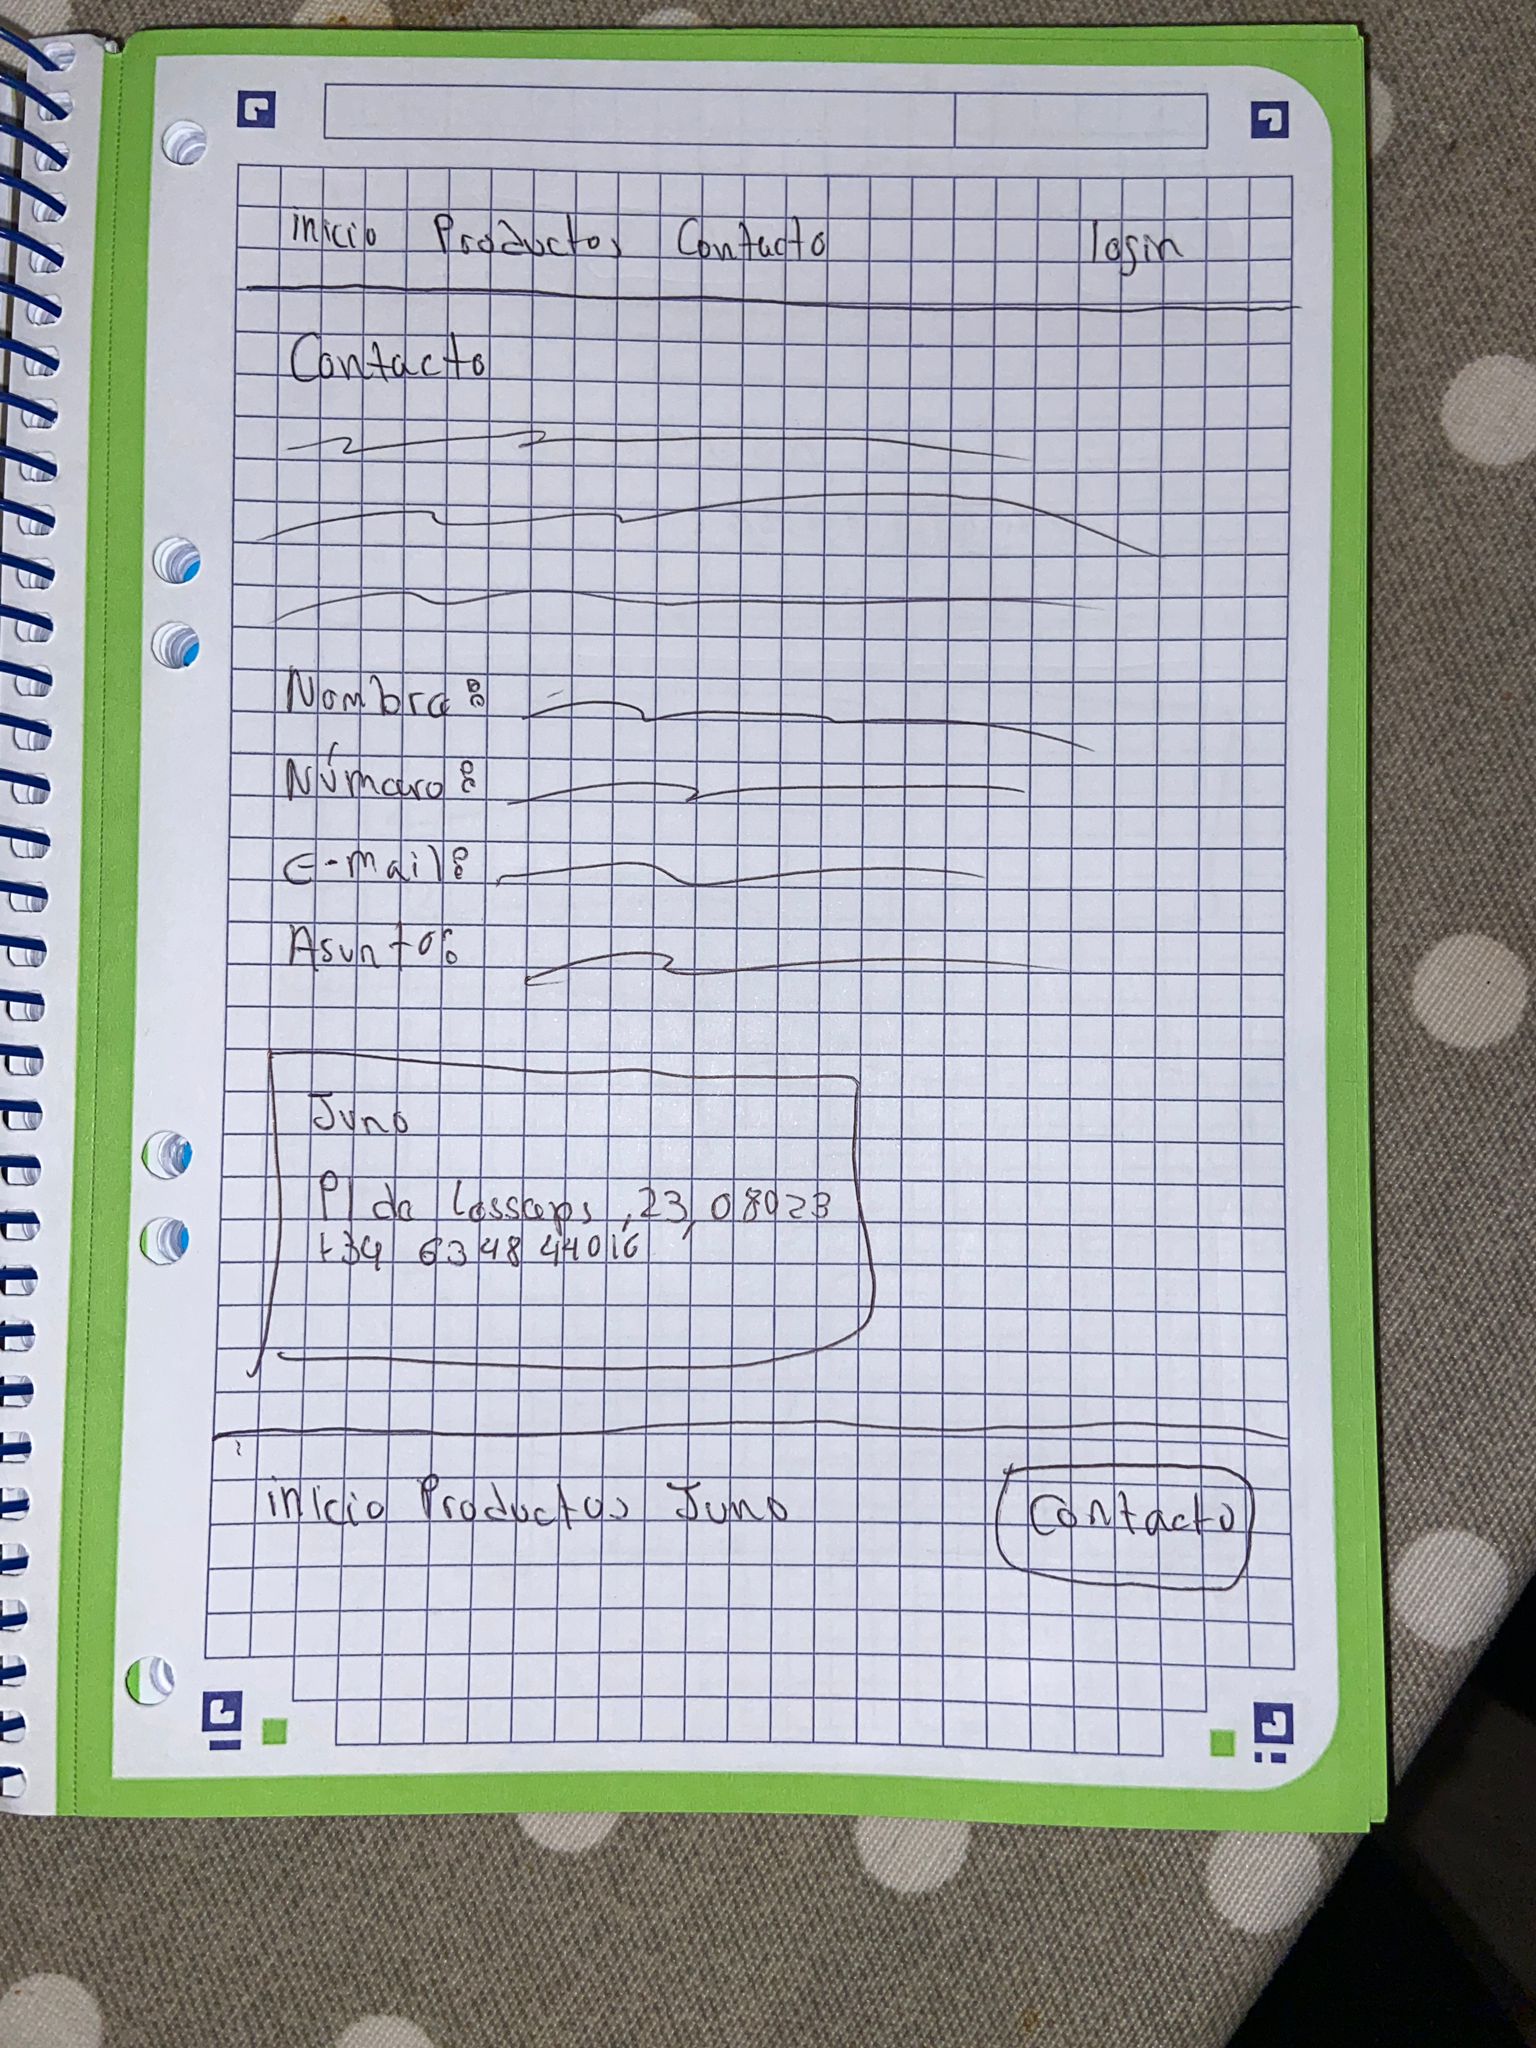 inicio Productos Contacto login
Contacto
Nombre:
Número:
E-mail:
Asunto:
Juno
Pl de Lesseps, 23, 08023
+34 63 48 44016
inicio Productos Juno Contacto